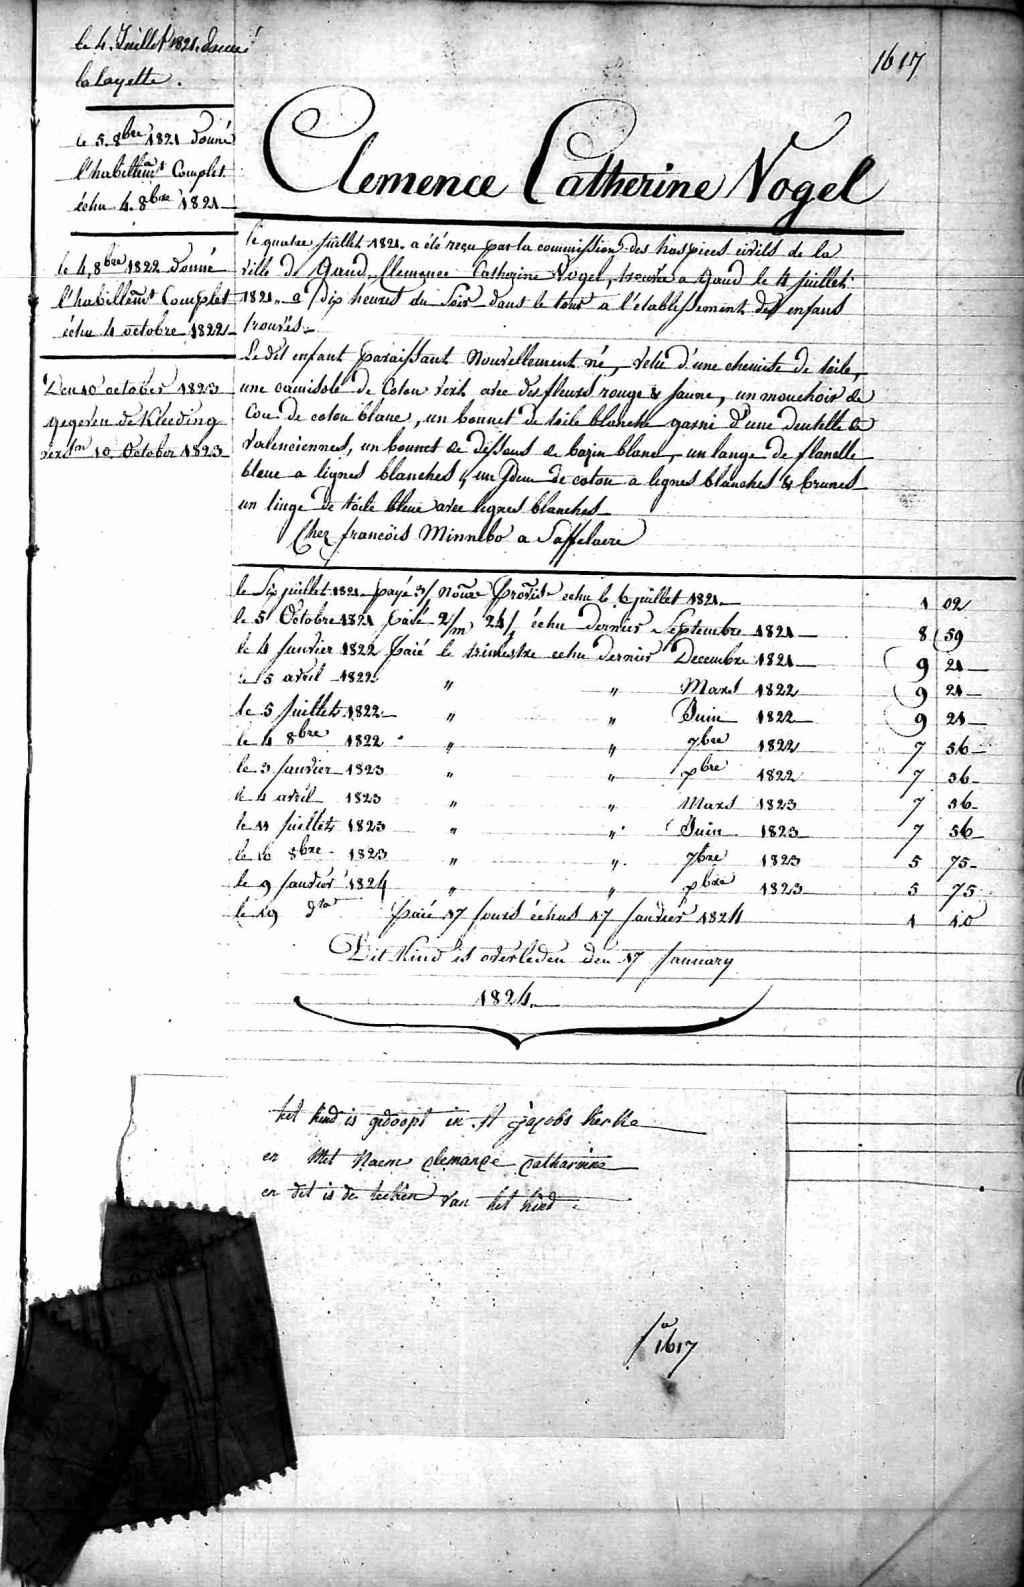 1617
le 4 Juillet 1821. donné
la layette.
le 5. 8bre 1821 donné
l'habillemt Complet
échu 4. 8bre 1821
le 4 8bre 1822 donné
l'habillemt Complet
échu 4 octobre 1822
Den 10 october 1823
gegeven de Kleeding
verstn 10. October 1823
Clemence Catherine Vogel
le quatre juillet 1821. a été reçu par la commission des hospices civils de la
ville de Gand, Clemence Catherine Vogel, trouvée a Gand le 4 juillet
1821 a dix heures du Soir dans le tour a l'établissement des enfans
trouvés.
Le dit enfant paraissant nouvellement né, vetu d'une chemise de toile,
une camisole de Coton vert avec des fleurs rouge & jaune, un mouchoir de
Cou de coton blanc, un bonnet de toile blanche garni d'une dentelle de
Valenciennes, un bonnet de dessous de bazin blanc, un lange de flanelle
bleue a lignes blanches, un Idem de coton a lignes blanches & brunes
un linge de toile bleue avec lignes blanches
Chez francois Minnebo a Saffelaere
le Six juillet 1821. payé 3/ nourre Provisre echu le 6 juillet 1821. 1 02
le 5 Octobre 1821 Paié 2/m 24/j échu dernier Septembre 1821 8 59
le 4 Janvier 1822 Paié le trimestre echu dernier Decembre 1821 9 21
le 5 avril 1822 " " Mars 1822 9 21
le 5 Juillet 1822 " " Juin 1822 9 21
le 4 8bre 1822 " " 7bre 1822 7 36
le 3 Janvier 1823 " " xbre 1822 7 36
le 4 avril 1823 " " Mars 1823 7 36
le 11 Juillet 1823 " " Juin 1823 7 36
le 10 8bre 1823 " " 7bre 1823 5 75
le 9 Janvier 1824 " " xbre 1823 5 75
le 19 dto Paié 17 jours échus 17 Janvier 1824 1 10
Dit Kind is overleden den 17 January
1824.
het kind is gedoopt in St jacobs kerke
en met Naem clemance catharina
en dit is de teeken van het kind.
fo 1617